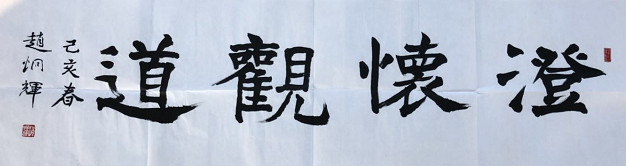 澄懷觀道
己亥春
趙炯輝